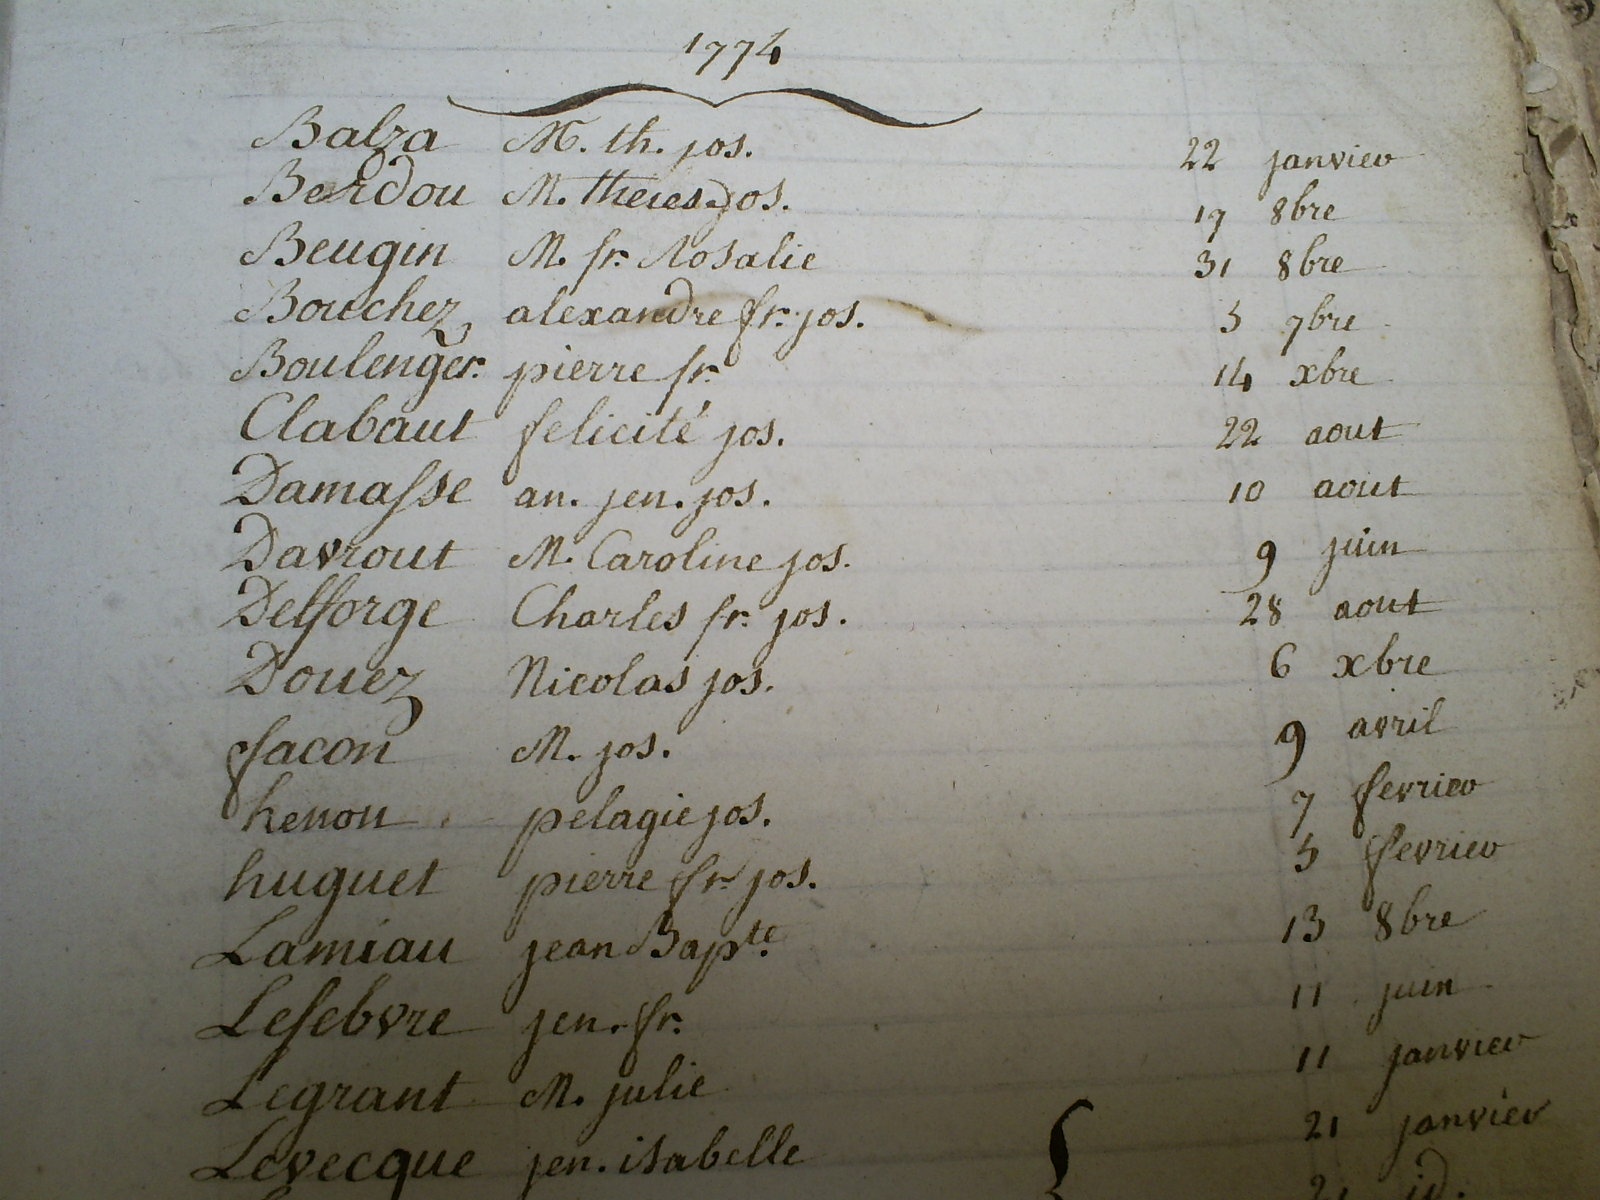 1774
Balza M. th. jos. 22 janvier
Berdou M. theres. jos. 19 8bre
Beugin M. fr. Rosalie 31 8bre
Bouchez alexandre fr. jos. 5 7bre
Boulenger. pierre fr. 14 xbre
Clabaut felicité jos. 22 aout
Damasse an. jen. jos. 10 aout
Davrout M. Caroline jos. 9 juin
Delforge Charles fr. jos. 28 aout
Douez Nicolas jos. 6 xbre
facon M. jos. 9 avril
henon pelagie jos. 7 fevrier
huguet pierre fr. jos. 5 fevrier
Lamiau jean Bapte. 13 8bre
Lefebvre jen. fr. 11 juin
Legrant M. julie 11 janvier
Levecque jen. isabelle { 21 janvier
id.